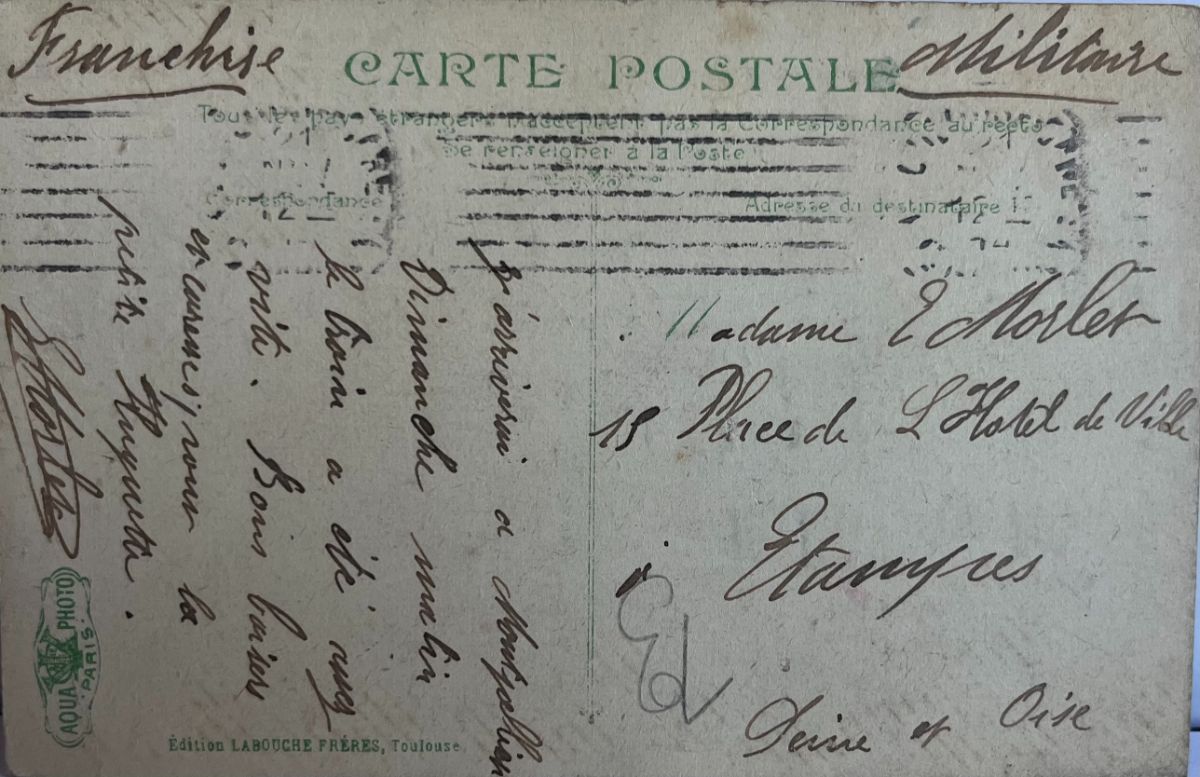 Franchise Militaire
CARTE POSTALE
Tous les pays étrangers n'acceptent pas la Correspondance au recto
Se renseigner à la Poste
Correspondance
Adresse du destinataire
J'arriverai a Montpellier
Dimanche matin
le train a été assez
vite. Bons baisers
et caresses pour la
petite Huguette.
EMorlet
Madame E Morlet
15 Place de L'Hotel de Ville
à Etampes
Seine et Oise
AQUA PHOTO
PARIS
Édition LABOUCHE FRÈRES, Toulouse